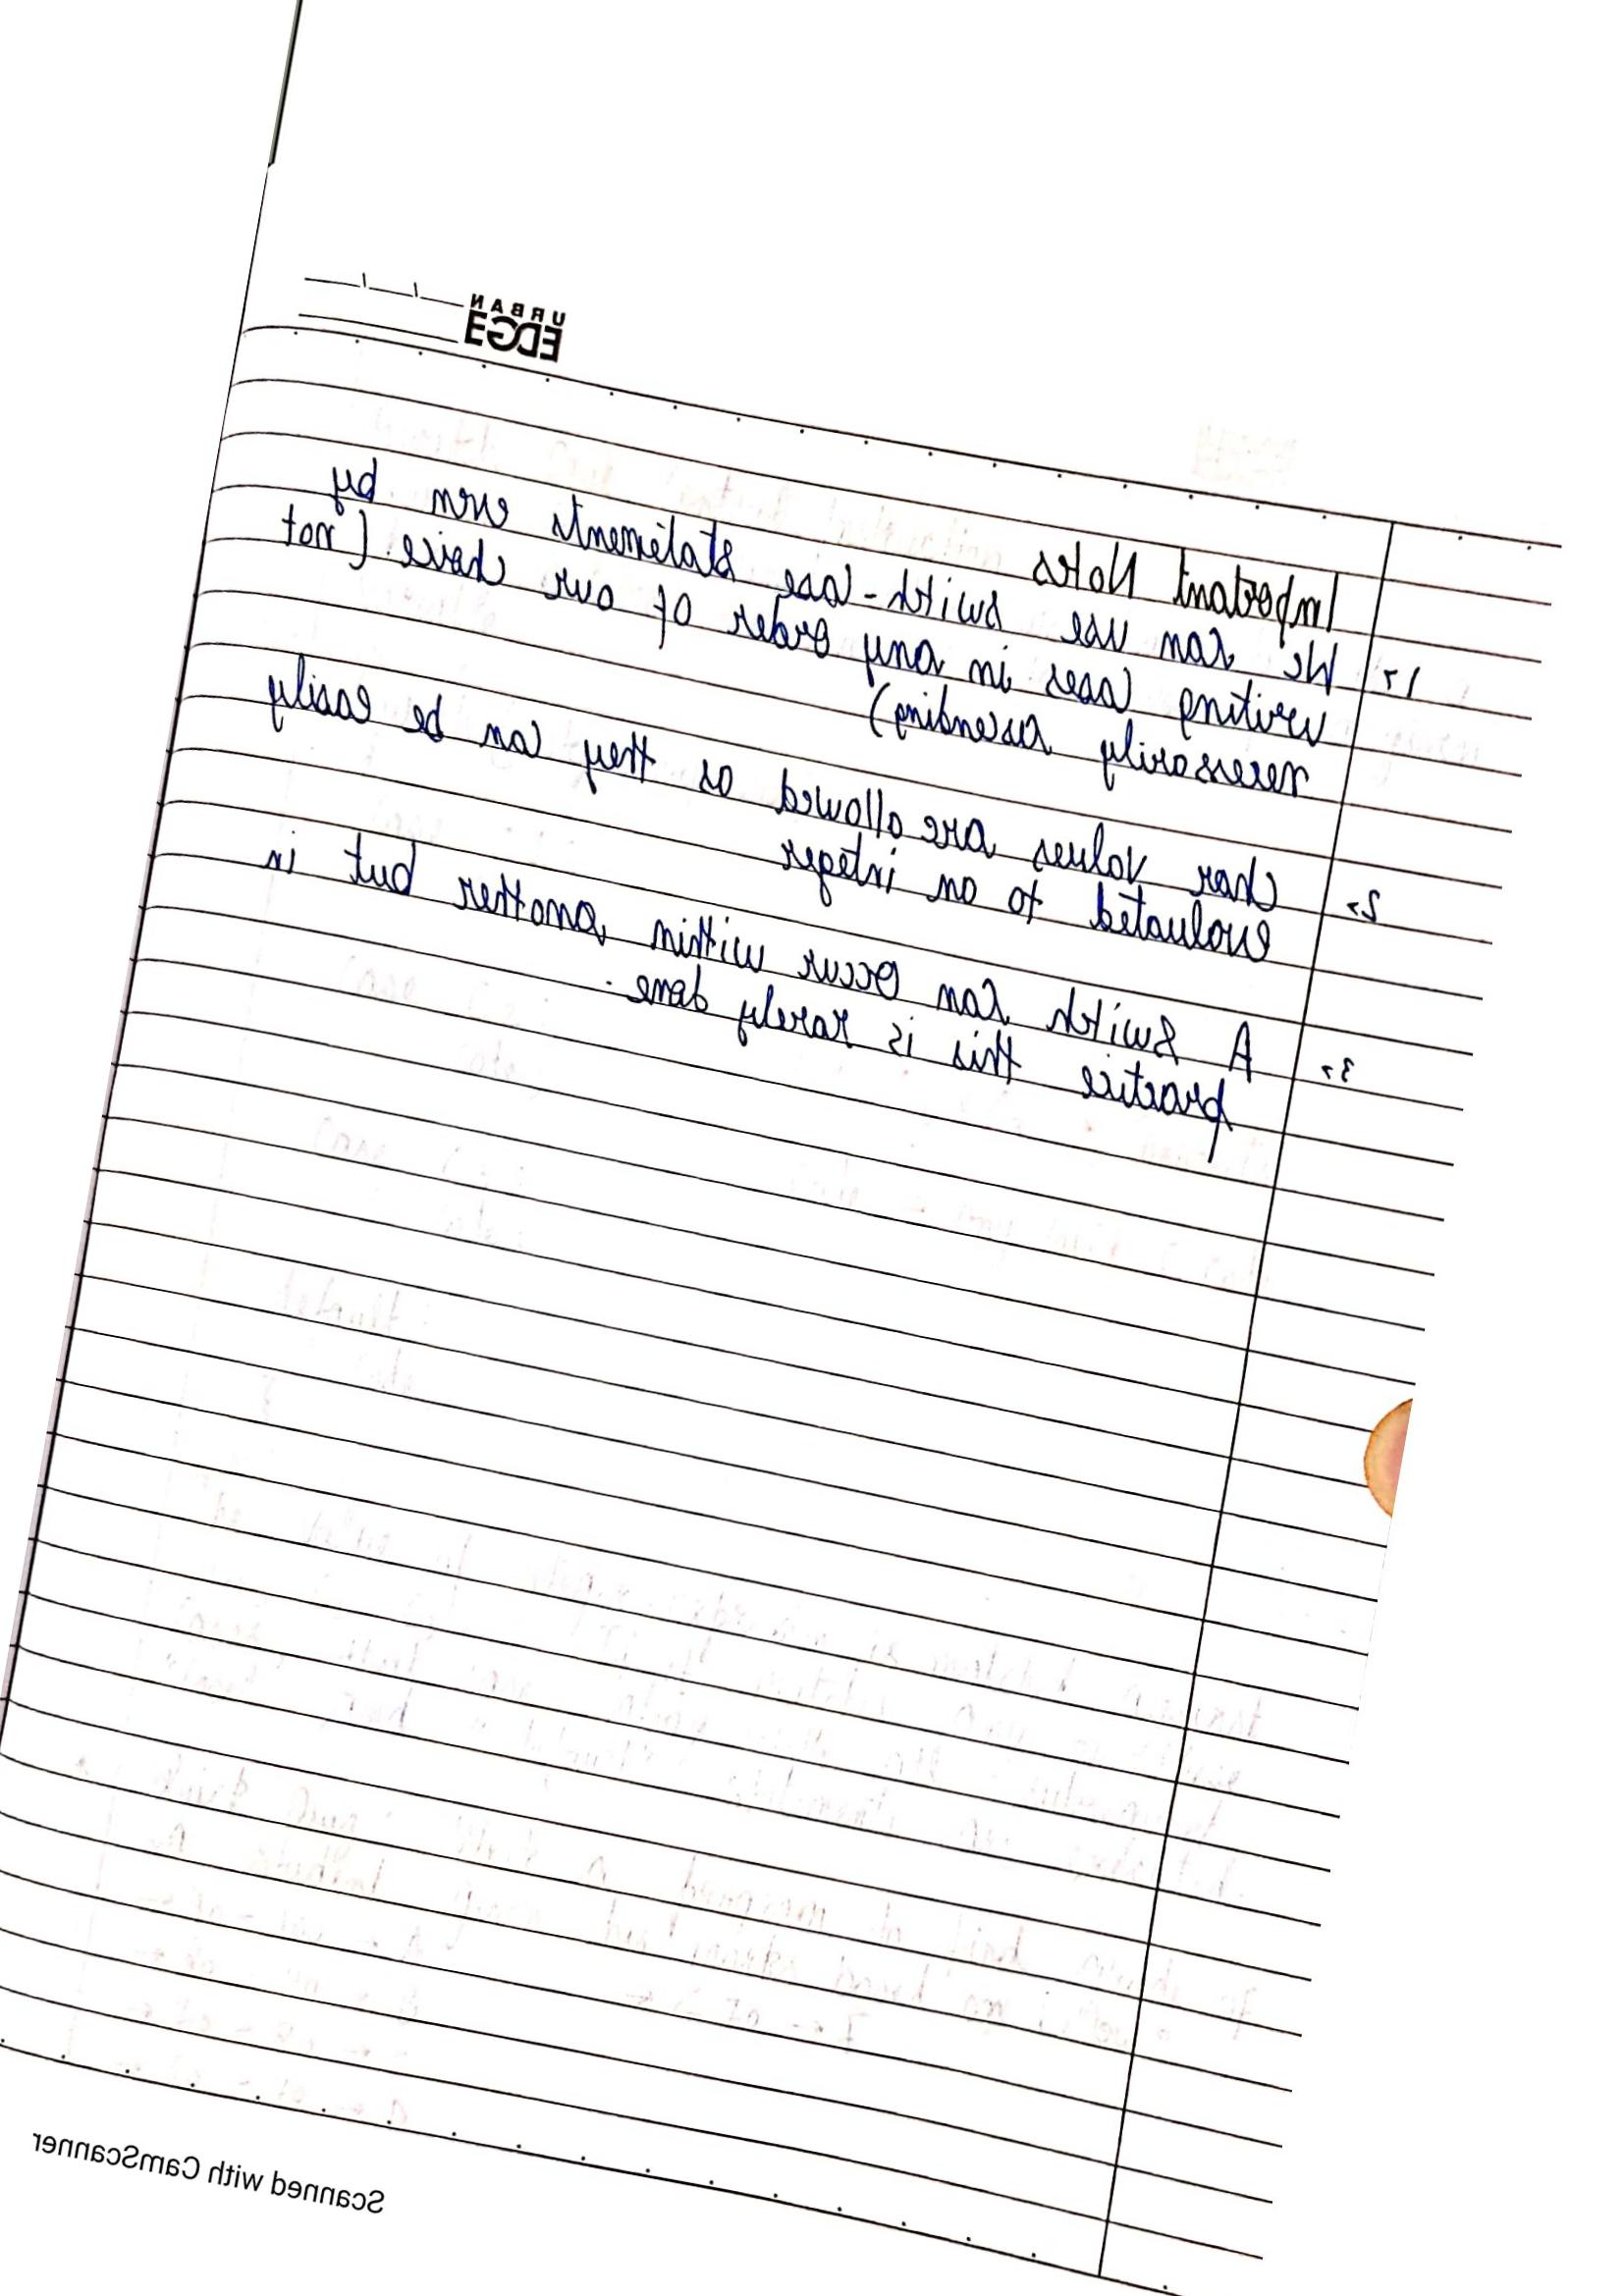 URBAN
EDGE
Important Notes
1→ We can use switch-case statements even by
writing cases in any order of our choice (not
necessarily ascending)
2→ Char values are allowed as they can be easily
evaluated to an integer
3→ A switch can occur within another but in
practice this is rarely done.
Scanned with CamScanner